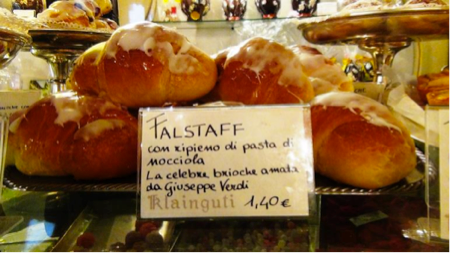 FALSTAFF
con ripieno di pasta di
nocciola
La celebre brioche amata
da Giuseppe Verdi
Klainguti 1,40 €